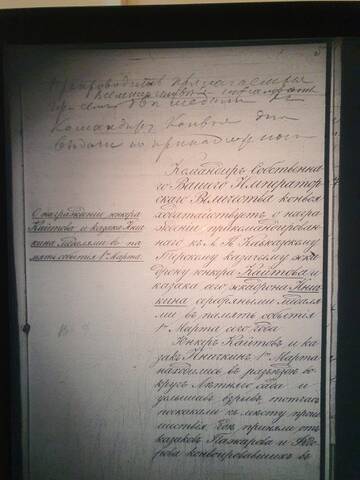 Препроводить прилагаемыя
при семъ две медали
Командиру Конвоя для
выдачи по принадлежности
О награжденіи юнкера
Кайтова и казака Кни
жкина медалями въ па
мять событія 1го Марта.
Командиръ Собственна
го Вашего Император
скаго Величества конвоя
ходатайствуетъ о награ
жденіи прикомандирован
наго къ Л. Гв. Кавказскому
Терскому казачьему эска
дрону юнкера Кайтова и
казака сего эскадрона Кни
жкина серебряными медаля
ми въ память событія
1го Марта сего года
Юнкеръ Кайтовъ и ка
закъ Книжкинъ 1го Марта
находились въ разъѣздѣ во
кругъ Лѣтняго сада и
услышавъ взрывъ, тотчасъ
поскакали къ мѣсту проис
шествія, гдѣ, приняли отъ
казаковъ Мачарова и
рова конвоировавшихъ въ